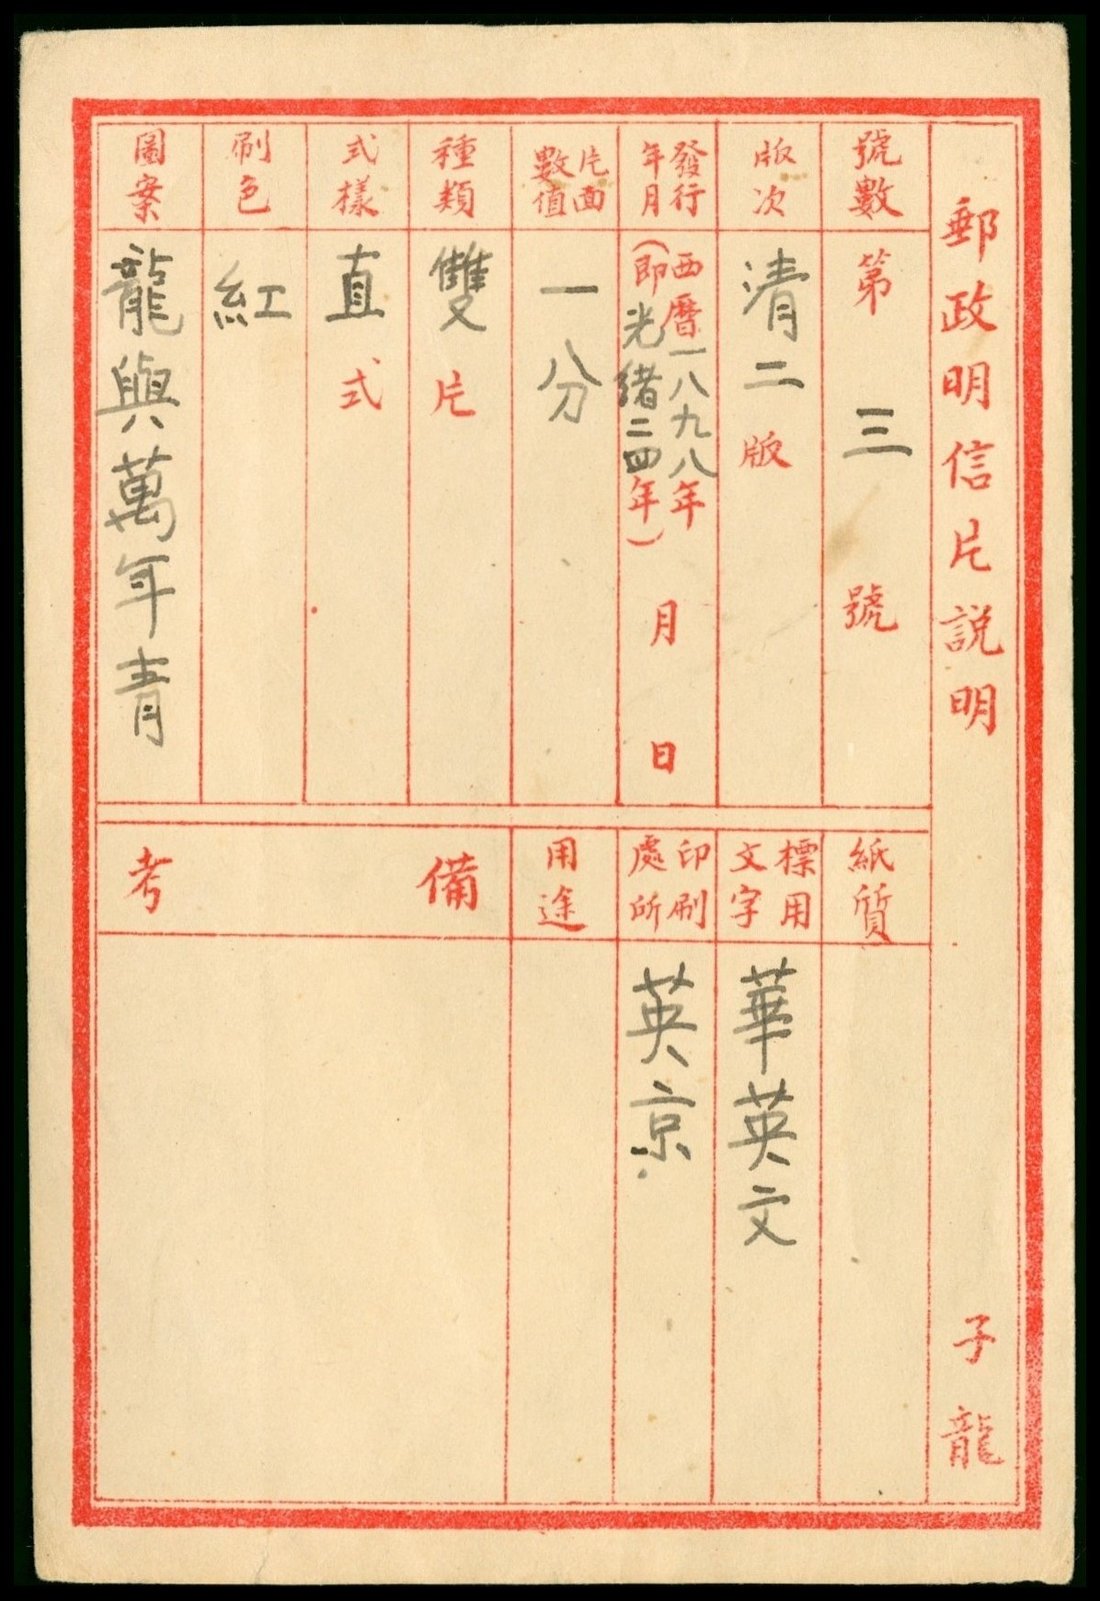 郵政明信片説明 子龍
號數
第三號
版次
清二版
發行年月
西曆一八九八年
(即光緒二四年)
月 日
片面數值
一分
種類
雙片
式樣
直式
刷色
紅
圖案
龍與萬年青
紙質
標用文字
華英文
印刷處所
英京
用途
備考